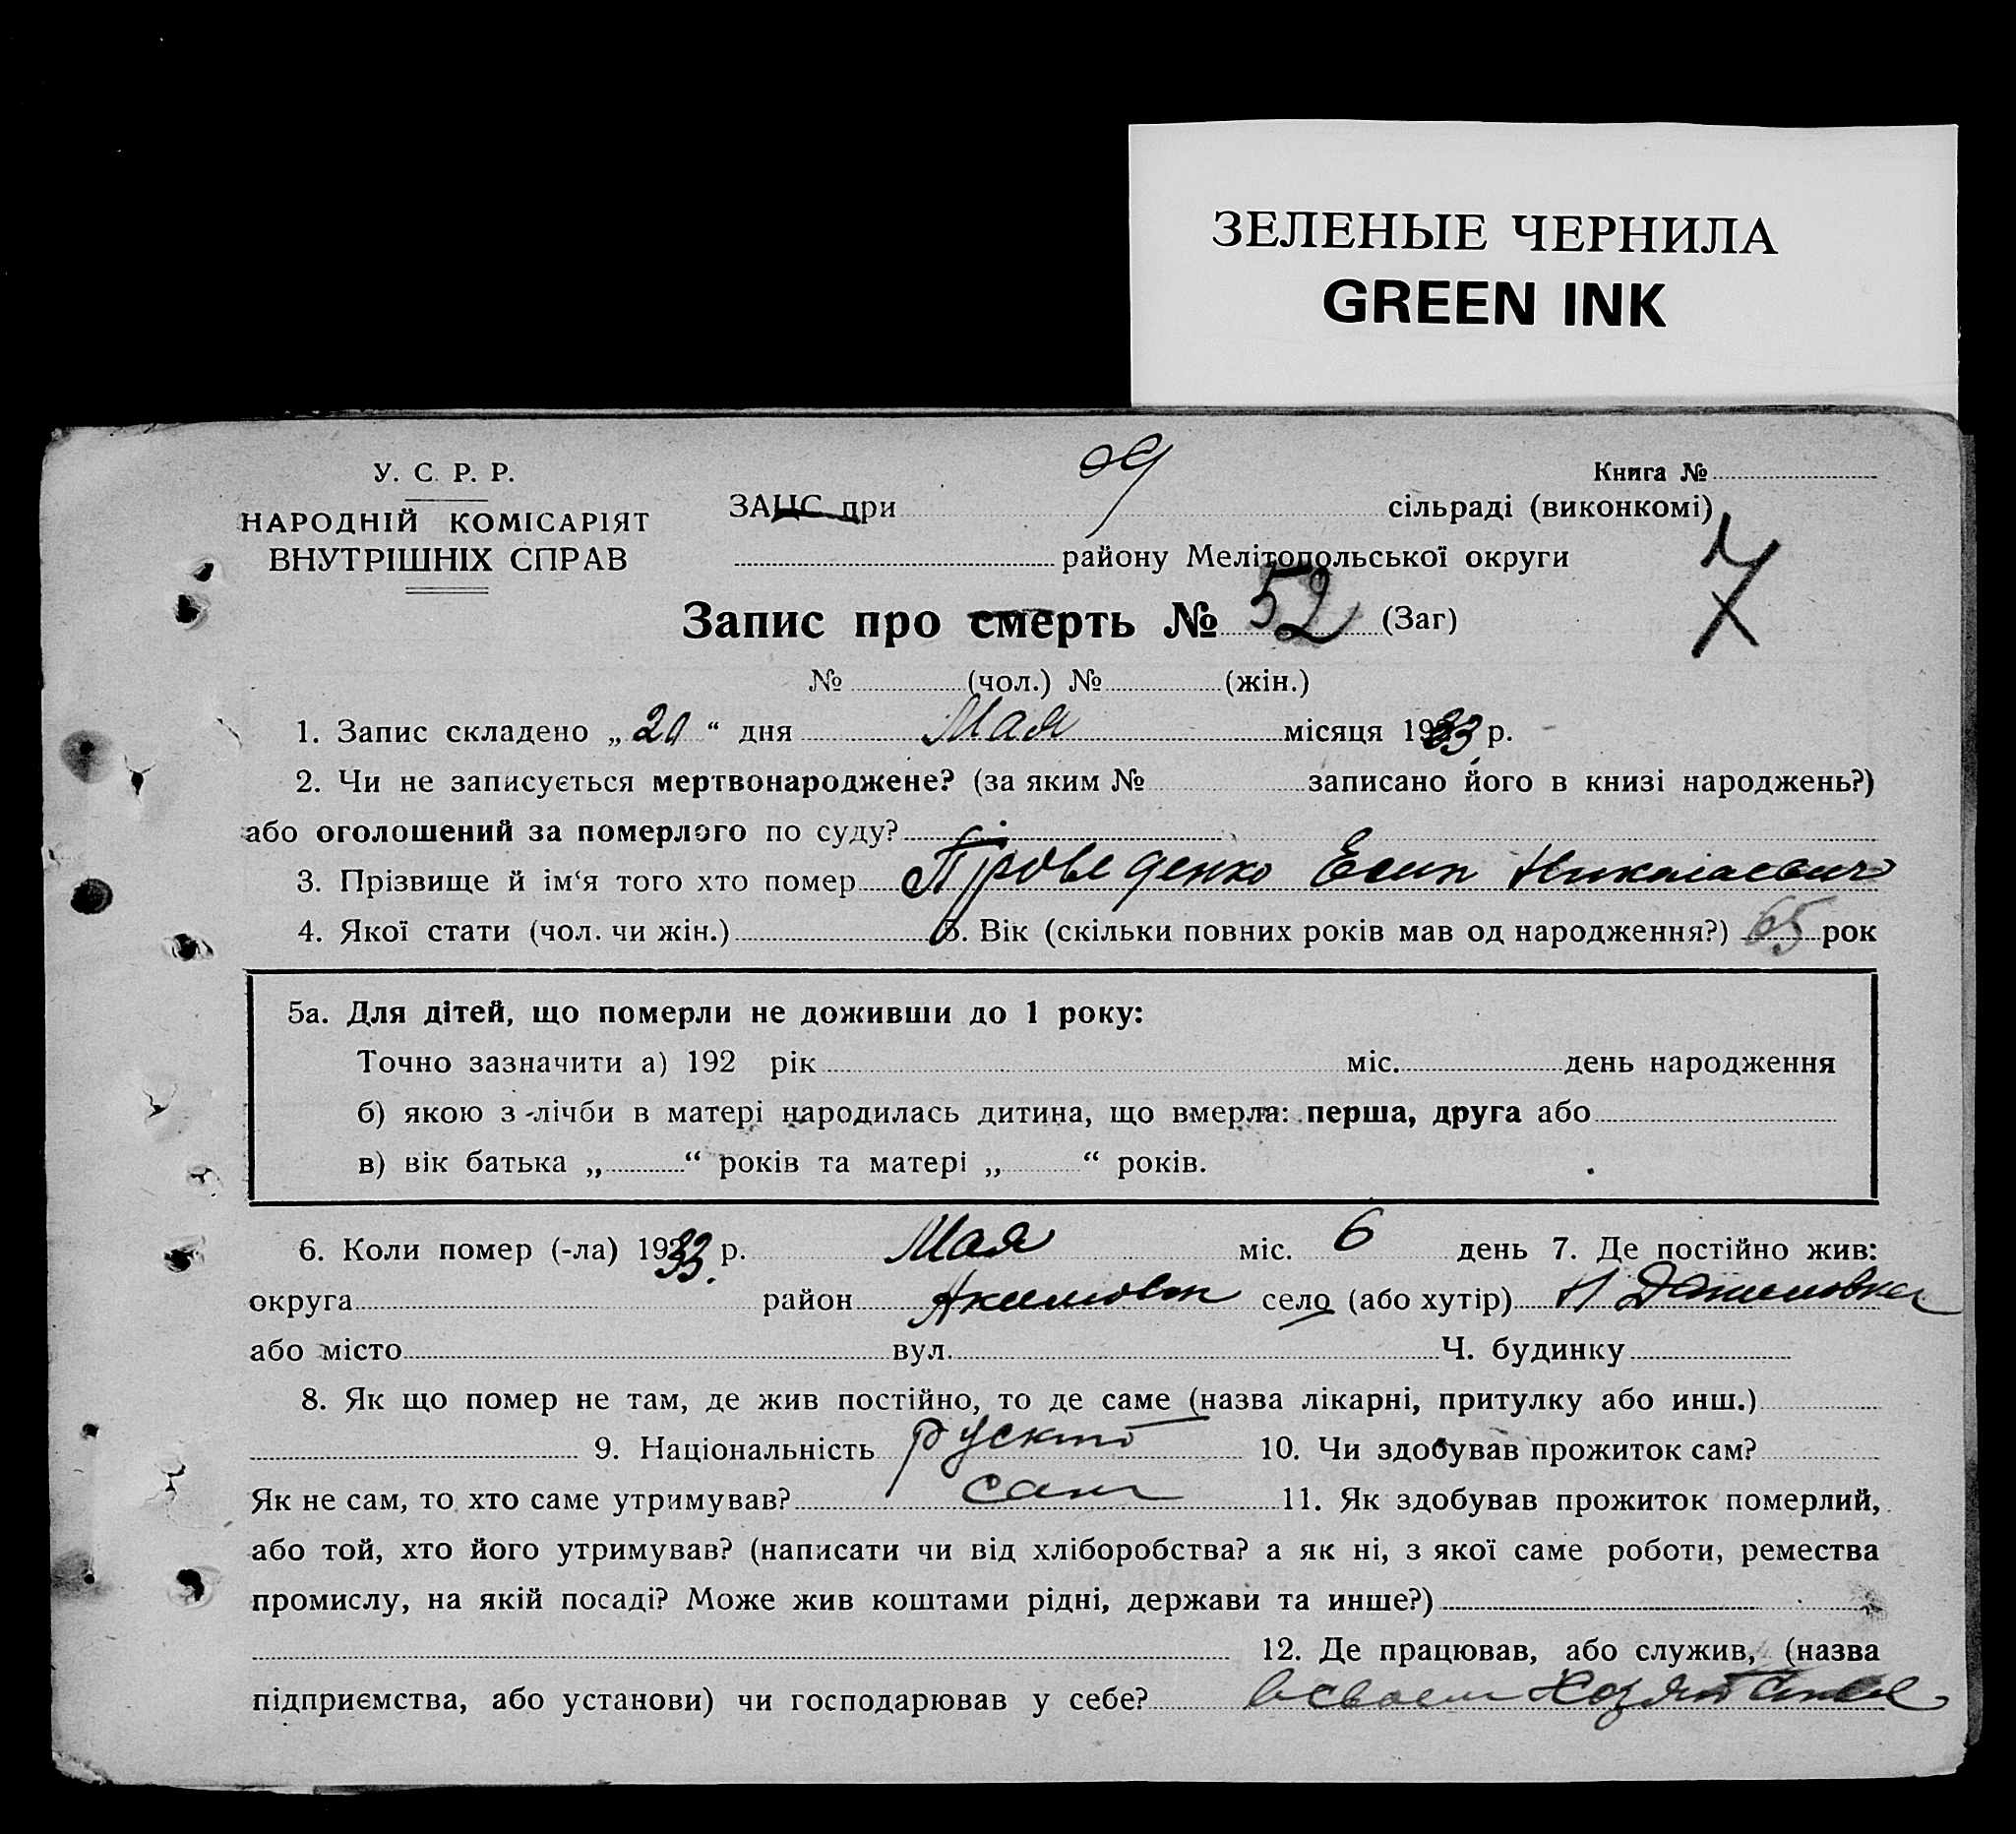 ЗЕЛЕНЫЕ ЧЕРНИЛА
GREEN INK
У. С. Р. Р.
НАРОДНІЙ КОМІСАРІЯТ
ВНУТРІШНІХ СПРАВ
Книга №
ЗАЦС при сільраді (виконкомі)
району Мелітопольської округи
7
Запис про смерть № 52 (Заг)
№ (чол.) № (жін.)
1. Запис складено „20“ дня Мая місяця 1933 р.
2. Чи не записується мертвонароджене? (за яким № записано його в книзі народжень?)
або оголошений за померлого по суду?
3. Прізвище й ім‘я того хто помер Проведенко Есип Николаевич
4. Якої стати (чол. чи жін.) 5. Вік (скільки повних років мав од народження?) 65 рок
5а. Для дітей, що померли не доживши до 1 року:
Точно зазначити а) 192 рік міс. день народження
б) якою з -лічби в матері народилась дитина, що вмерла: перша, друга або
в) вік батька „ “ років та матері „ “ років.
6. Коли помер (-ла) 1933 р. Мая міс. 6 день 7. Де постійно жив:
округа район Акимовск село (або хутір) Н Даниловка
або місто вул. Ч. будинку
8. Як що помер не там, де жив постійно, то де саме (назва лікарні, притулку або инш.)
9. Національність руский 10. Чи здобував прожиток сам?
Як не сам, то хто саме утримував? сам 11. Як здобував прожиток померлий,
або той, хто його утримував? (написати чи від хліборобства? а як ні, з якої саме роботи, ремества
промислу, на якій посаді? Може жив коштами рідні, держави та инше?)
12. Де працював, або служив, (назва
підприємства, або установи) чи господарював у себе? в своем хозяйстве